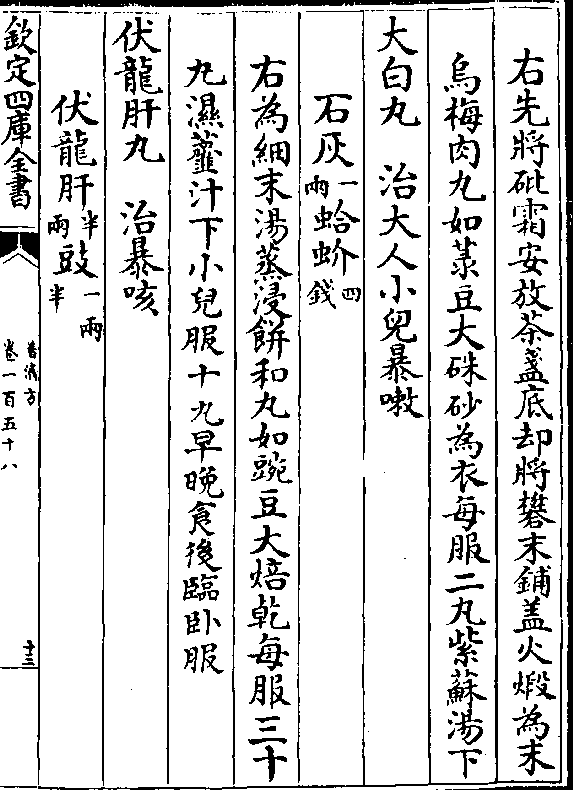 右先將砒霜安放茶盞底却將礬末鋪盖火煅為末
烏梅肉丸如菉豆大硃砂為衣每服二丸紫蘇湯下
大白丸 治大人小兒暴嗽
石灰一兩 蛤蚧四錢
右為細末湯蒸浸餅和丸如豌豆大焙乾每服三十
丸濕虀汁下小兒服十丸早晚食後臨卧服
伏龍肝丸 治暴咳
伏龍肝半兩 豉一兩半
欽定四庫全書
普濟方
卷一百五十八
十三